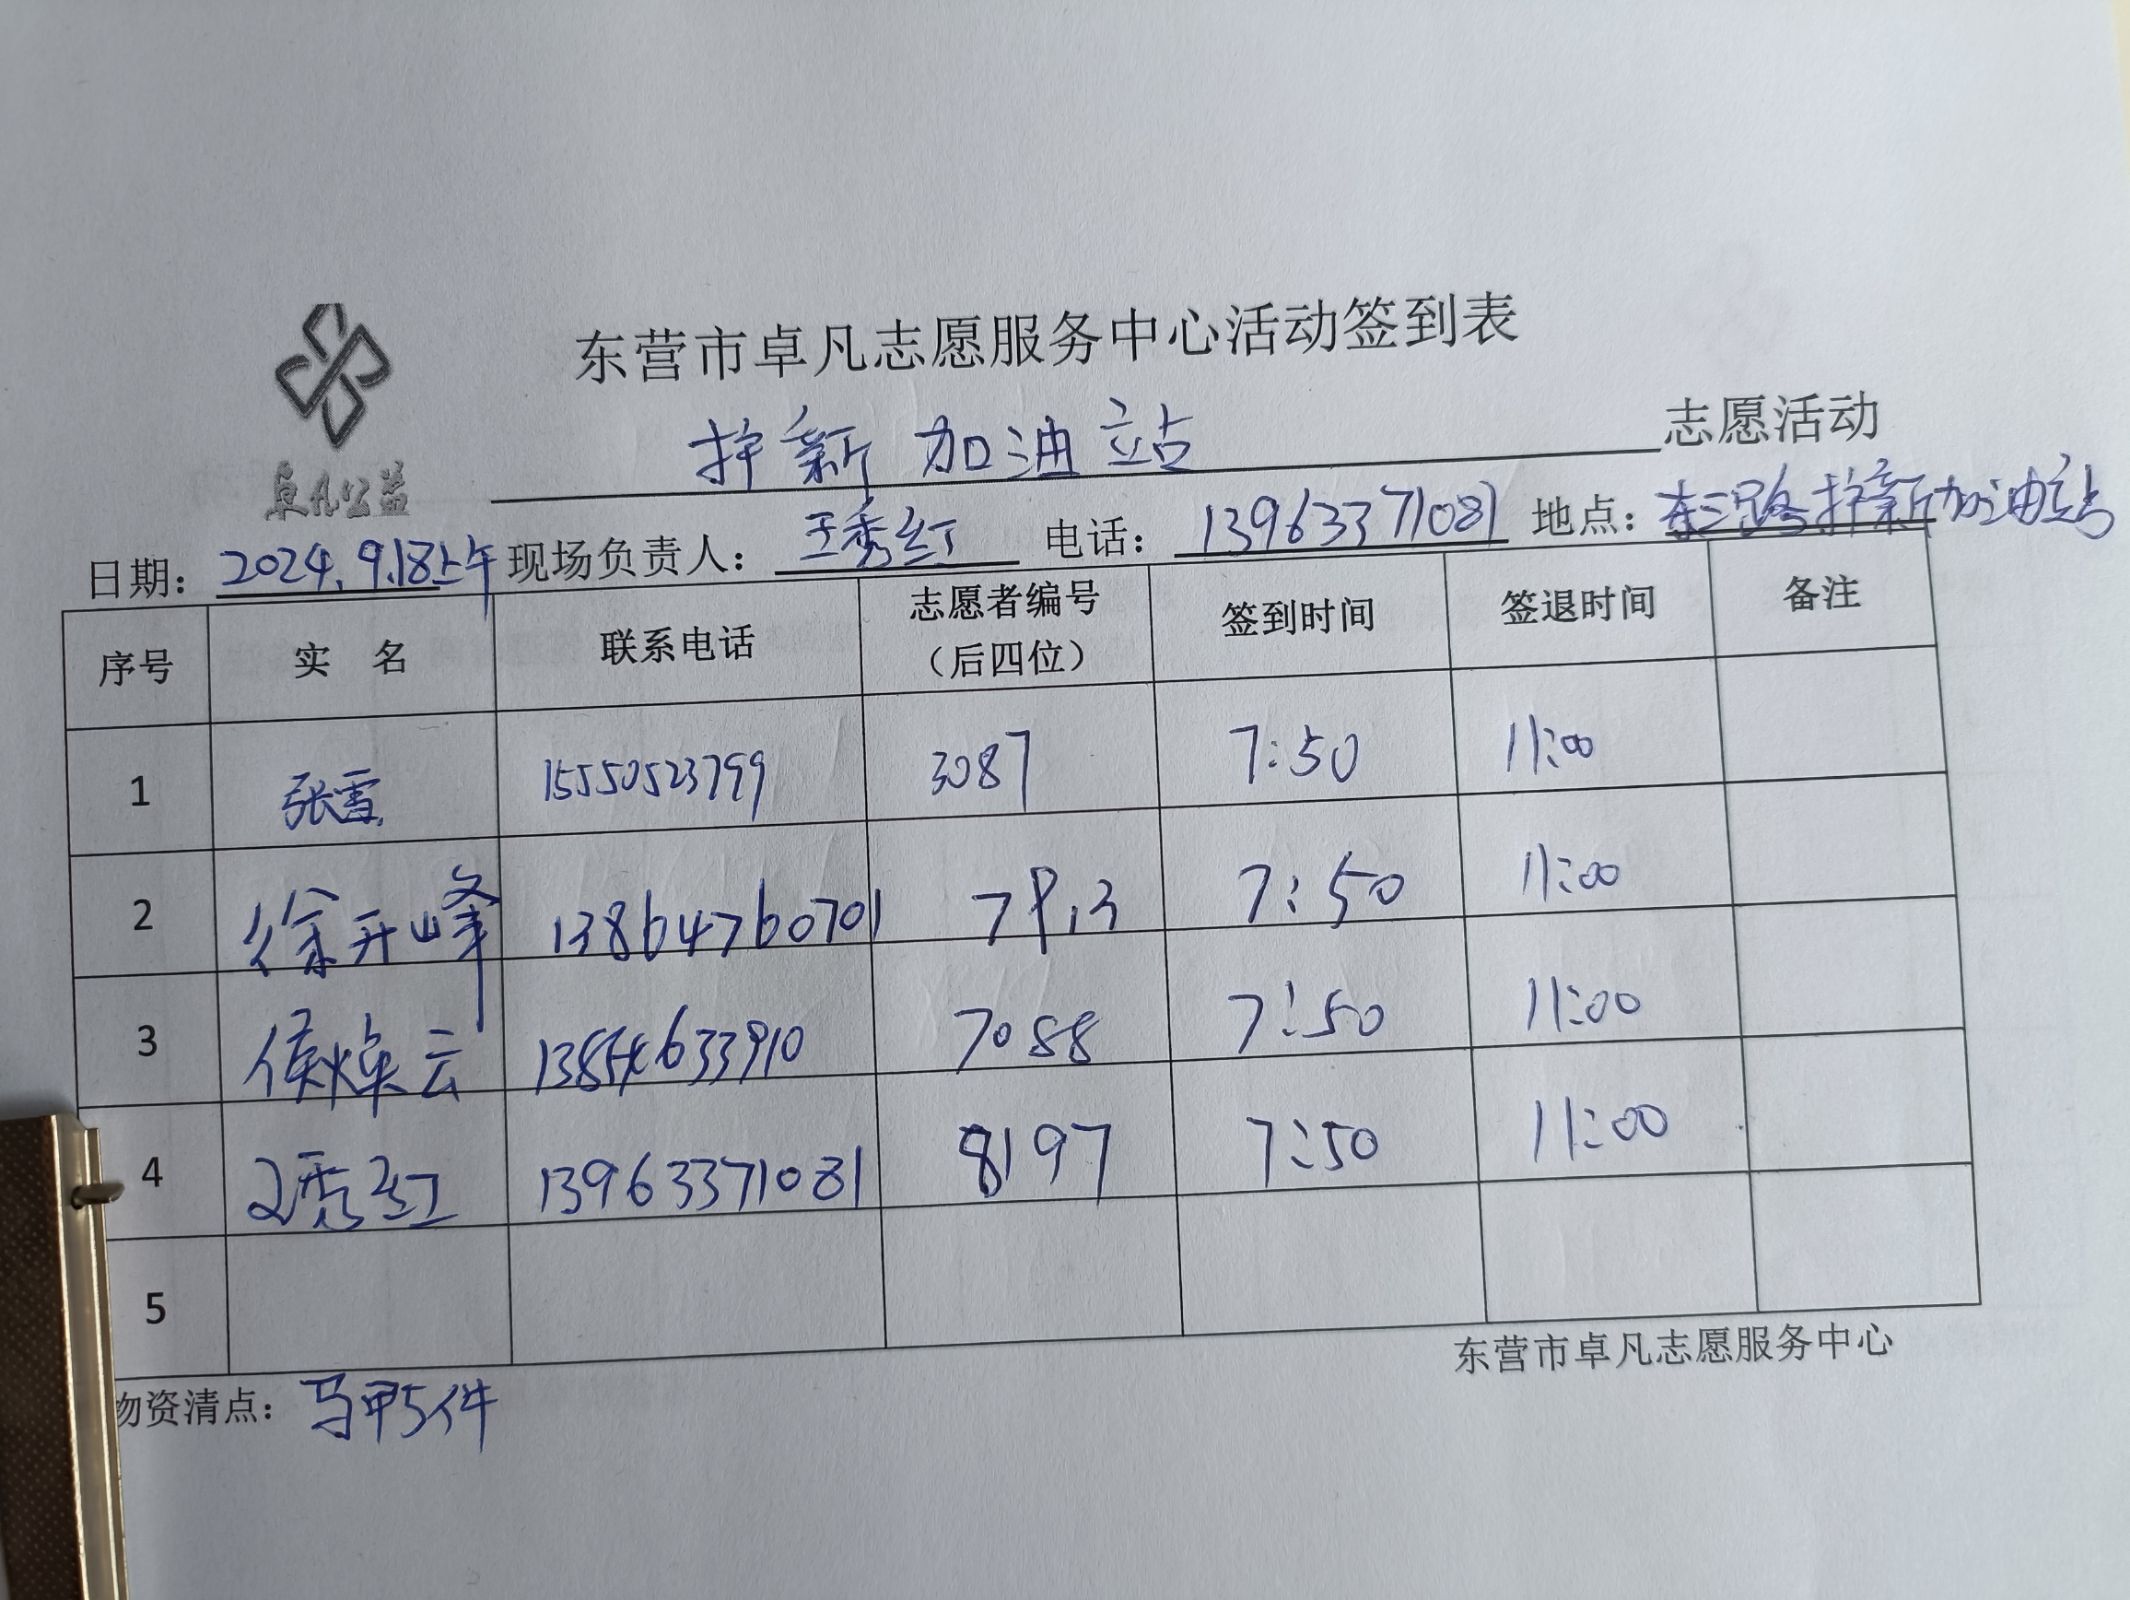 东营市卓凡志愿服务中心活动签到表
护新加油站 志愿活动
卓凡公益
日期：2024.9.18上午 现场负责人：王秀红 电话：13963371081 地点：东三路护新加油站
序号 实 名 联系电话 志愿者编号（后四位） 签到时间 签退时间 备注
1 张雪 15550523799 3087 7:50 11:00
2 徐开峰 13864760701 7:50 11:00
3 侯焕云 7088 7:50 11:00
4 王秀红 13963371081 8197 7:50 11:00
5
东营市卓凡志愿服务中心
物资清点：马甲5件